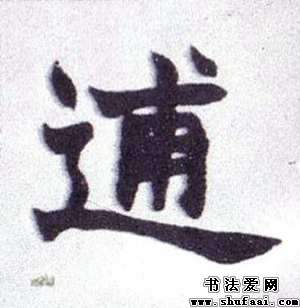 逋
书法爱网
www.shufaai.com